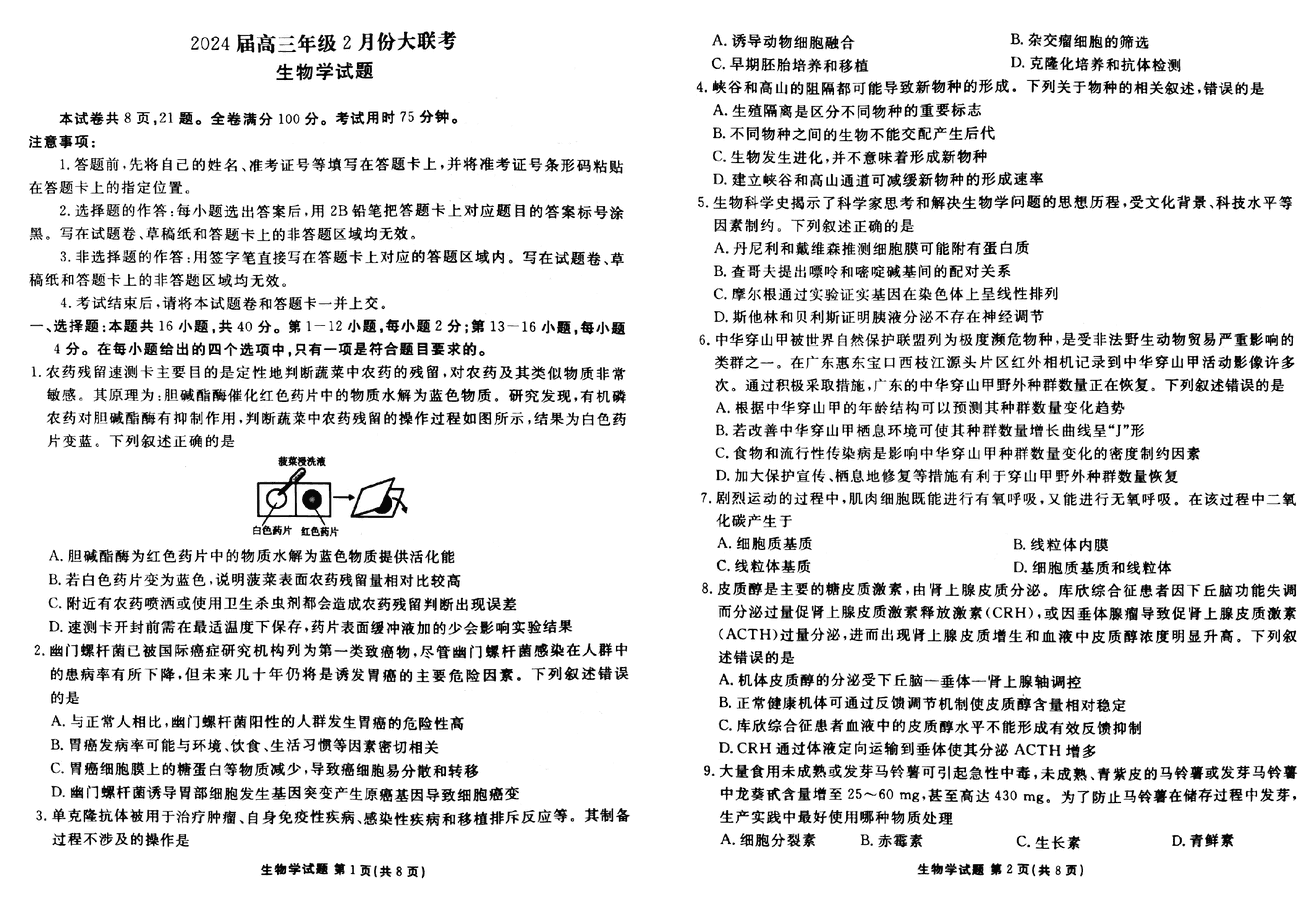 2024届高三年级2月份大联考
生物学试题
本试卷共8页,21题。全卷满分100分。考试用时75分钟。
注意事项:
1.答题前,先将自己的姓名、准考证号等填写在答题卡上,并将准考证号条形码粘贴
在答题卡上的指定位置。
2.选择题的作答:每小题选出答案后,用2B铅笔把答题卡上对应题目的答案标号涂
黑。写在试题卷、草稿纸和答题卡上的非答题区域均无效。
3.非选择题的作答:用签字笔直接写在答题卡上对应的答题区域内。写在试题卷、草
稿纸和答题卡上的非答题区域均无效。
4.考试结束后,请将本试题卷和答题卡一并上交。
一、选择题:本题共16小题,共40分。第1—12小题,每小题2分;第13—16小题,每小题
4分。在每小题给出的四个选项中,只有一项是符合题目要求的。
1.农药残留速测卡主要目的是定性地判断蔬菜中农药的残留,对农药及其类似物质非常
敏感。其原理为:胆碱酯酶催化红色药片中的物质水解为蓝色物质。研究发现,有机磷
农药对胆碱酯酶有抑制作用,判断蔬菜中农药残留的操作过程如图所示,结果为白色药
片变蓝。下列叙述正确的是
菠菜浸洗液
白色药片 红色药片
A.胆碱酯酶为红色药片中的物质水解为蓝色物质提供活化能
B.若白色药片变为蓝色,说明菠菜表面农药残留量相对比较高
C.附近有农药喷洒或使用卫生杀虫剂都会造成农药残留判断出现误差
D.速测卡开封前需在最适温度下保存,药片表面缓冲液加的少会影响实验结果
2.幽门螺杆菌已被国际癌症研究机构列为第一类致癌物,尽管幽门螺杆菌感染在人群中
的患病率有所下降,但未来几十年仍将是诱发胃癌的主要危险因素。下列叙述错误
的是
A.与正常人相比,幽门螺杆菌阳性的人群发生胃癌的危险性高
B.胃癌发病率可能与环境、饮食、生活习惯等因素密切相关
C.胃癌细胞膜上的糖蛋白等物质减少,导致癌细胞易分散和转移
D.幽门螺杆菌诱导胃部细胞发生基因突变产生原癌基因导致细胞癌变
3.单克隆抗体被用于治疗肿瘤、自身免疫性疾病、感染性疾病和移植排斥反应等。其制备
过程不涉及的操作是
生物学试题 第1页(共8页)
A.诱导动物细胞融合 B.杂交瘤细胞的筛选
C.早期胚胎培养和移植 D.克隆化培养和抗体检测
4.峡谷和高山的阻隔都可能导致新物种的形成。下列关于物种的相关叙述,错误的是
A.生殖隔离是区分不同物种的重要标志
B.不同物种之间的生物不能交配产生后代
C.生物发生进化,并不意味着形成新物种
D.建立峡谷和高山通道可减缓新物种的形成速率
5.生物科学史揭示了科学家思考和解决生物学问题的思想历程,受文化背景、科技水平等
因素制约。下列叙述正确的是
A.丹尼利和戴维森推测细胞膜可能附有蛋白质
B.查哥夫提出嘌呤和嘧啶碱基间的配对关系
C.摩尔根通过实验证实基因在染色体上呈线性排列
D.斯他林和贝利斯证明胰液分泌不存在神经调节
6.中华穿山甲被世界自然保护联盟列为极度濒危物种,是受非法野生动物贸易严重影响的
类群之一。在广东惠东宝口西枝江源头片区红外相机记录到中华穿山甲活动影像许多
次。通过积极采取措施,广东的中华穿山甲野外种群数量正在恢复。下列叙述错误的是
A.根据中华穿山甲的年龄结构可以预测其种群数量变化趋势
B.若改善中华穿山甲栖息环境可使其种群数量增长曲线呈“J”形
C.食物和流行性传染病是影响中华穿山甲种群数量变化的密度制约因素
D.加大保护宣传、栖息地修复等措施有利于穿山甲野外种群数量恢复
7.剧烈运动的过程中,肌肉细胞既能进行有氧呼吸,又能进行无氧呼吸。在该过程中二氧
化碳产生于
A.细胞质基质 B.线粒体内膜
C.线粒体基质 D.细胞质基质和线粒体
8.皮质醇是主要的糖皮质激素,由肾上腺皮质分泌。库欣综合征患者因下丘脑功能失调
而分泌过量促肾上腺皮质激素释放激素(CRH),或因垂体腺瘤导致促肾上腺皮质激素
(ACTH)过量分泌,进而出现肾上腺皮质增生和血液中皮质醇浓度明显升高。下列叙
述错误的是
A.机体皮质醇的分泌受下丘脑—垂体—肾上腺轴调控
B.正常健康机体可通过反馈调节机制使皮质醇含量相对稳定
C.库欣综合征患者血液中的皮质醇水平不能形成有效反馈抑制
D.CRH通过体液定向运输到垂体使其分泌ACTH增多
9.大量食用未成熟或发芽马铃薯可引起急性中毒,未成熟、青紫皮的马铃薯或发芽马铃薯
中龙葵甙含量增至25～60 mg,甚至高达430 mg。为了防止马铃薯在储存过程中发芽,
生产实践中最好使用哪种物质处理
A.细胞分裂素 B.赤霉素 C.生长素 D.青鲜素
生物学试题 第2页(共8页)